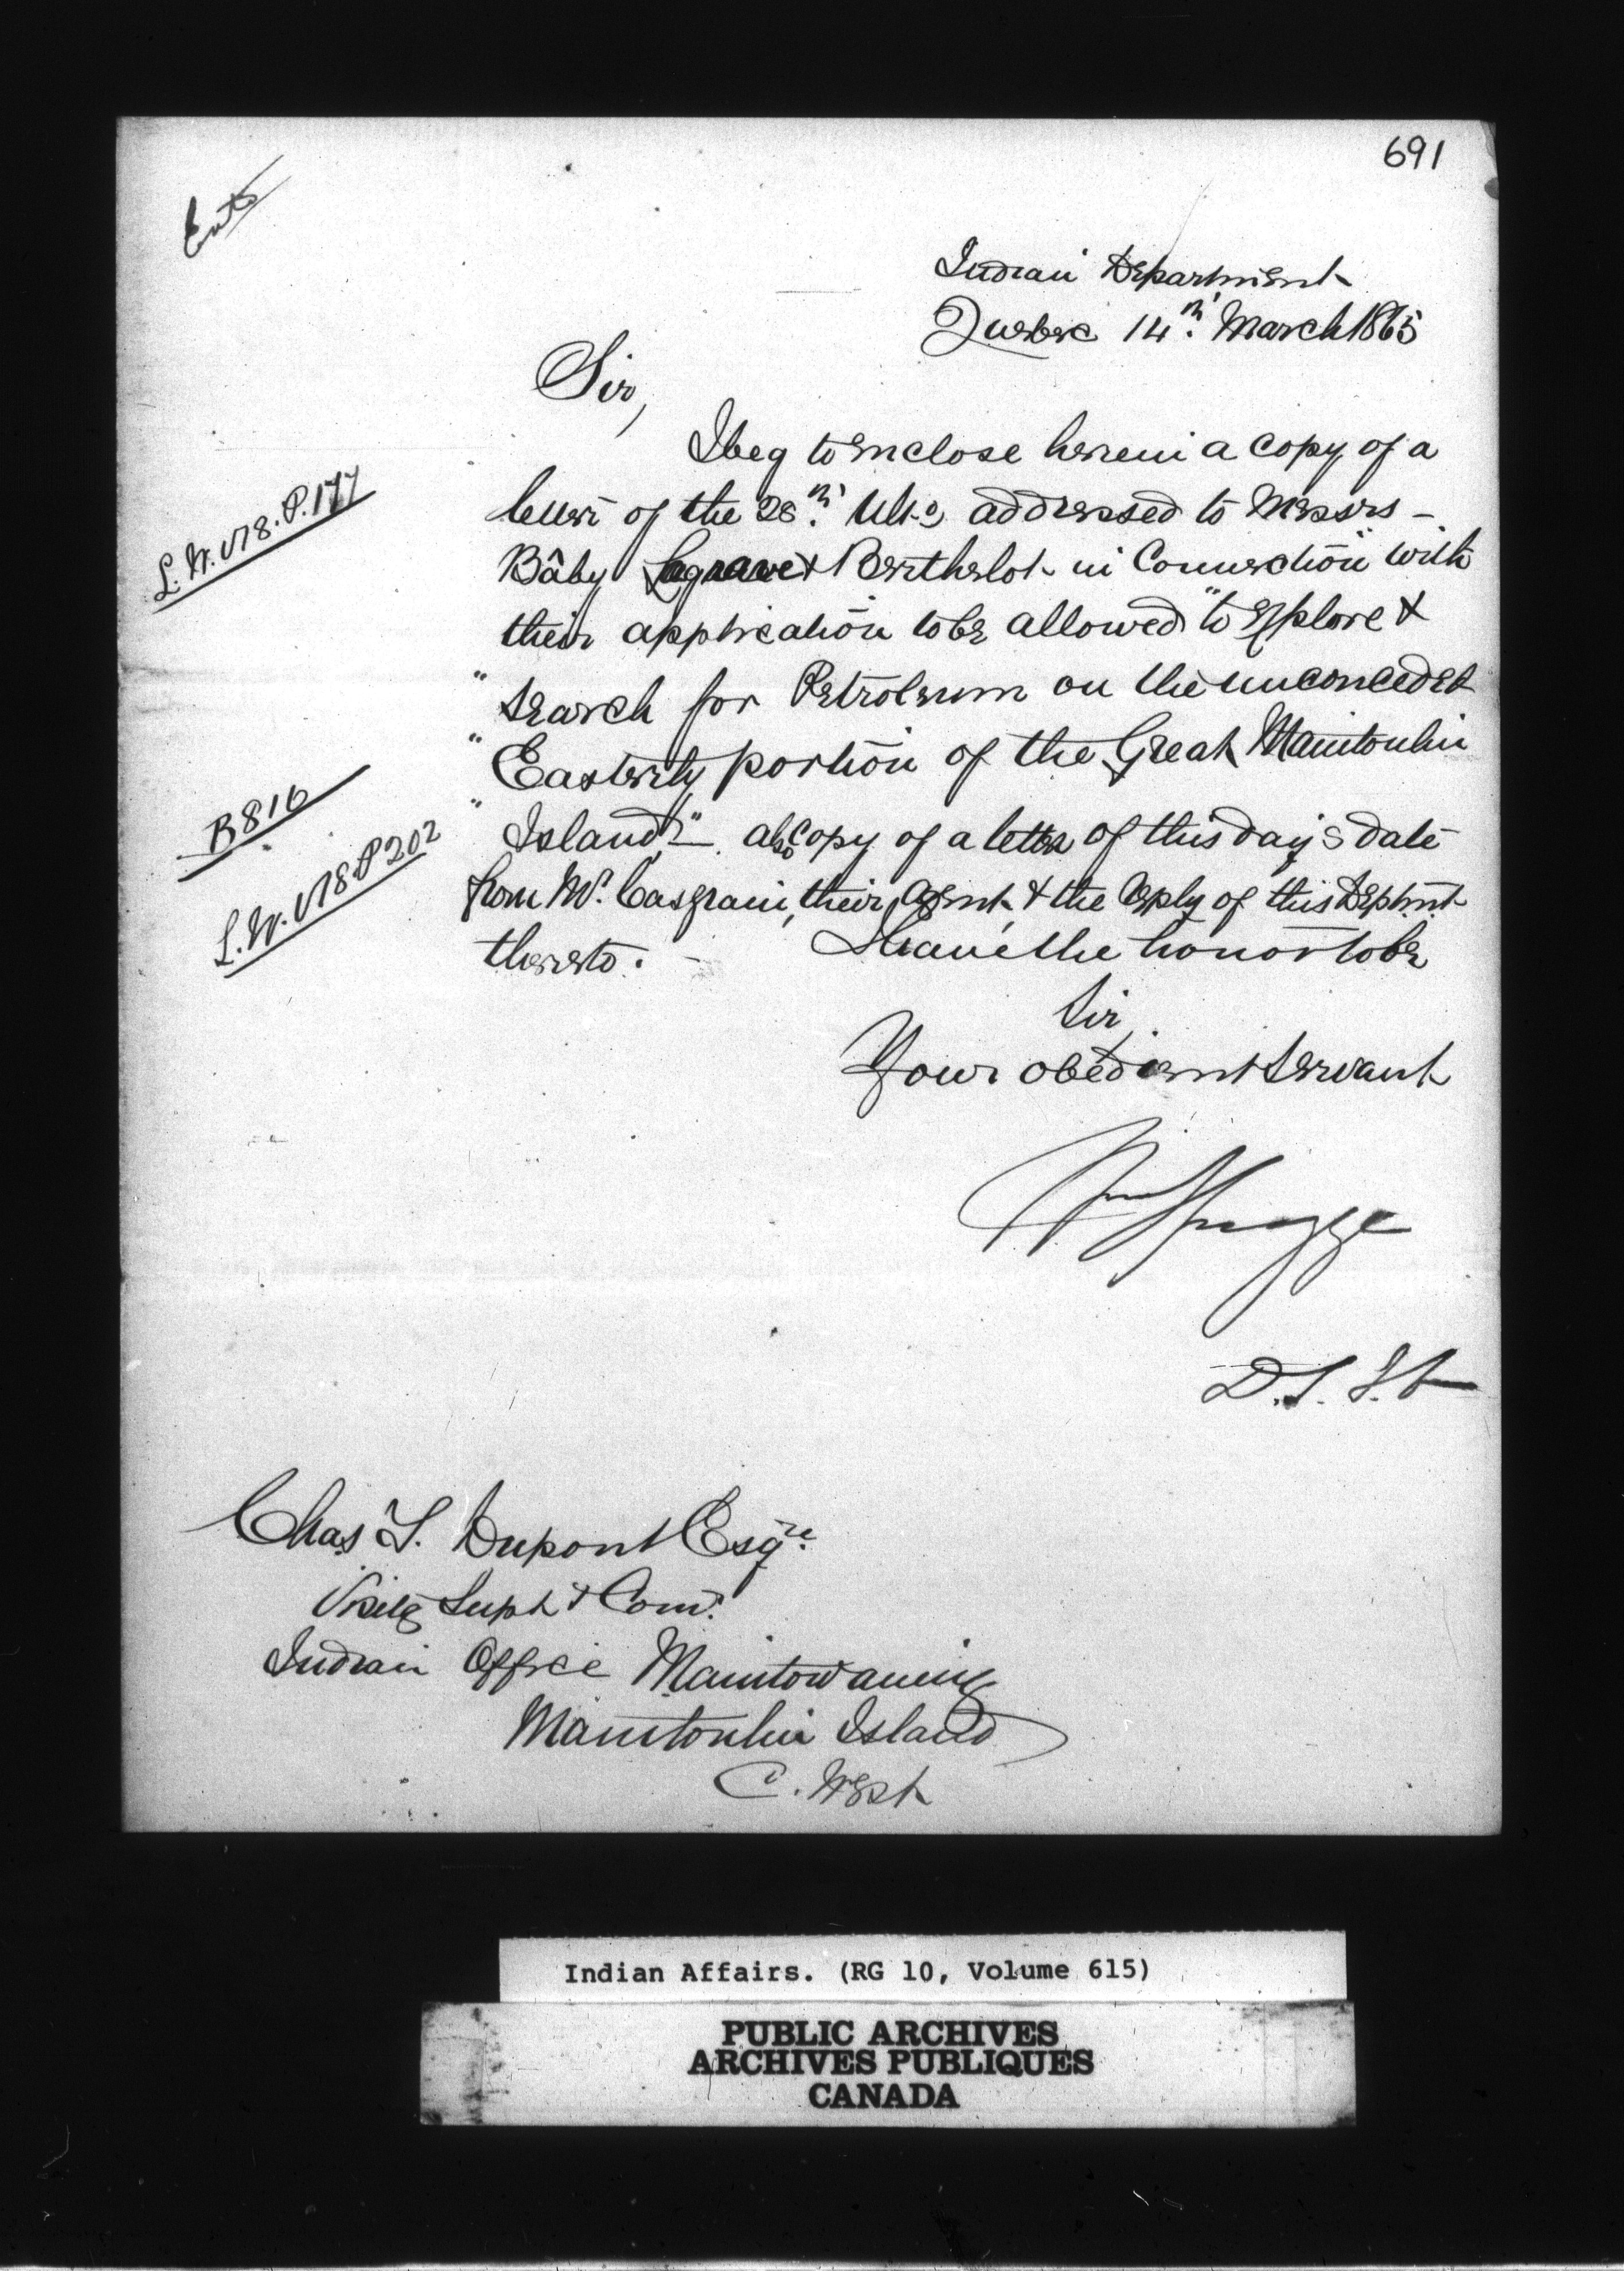 691
Ent
Indian Department
Quebec 14th March 1865
Sir,
I beg to enclose herein a copy of a
L. W. V 78. P. 177
letter of the 28th Ulto addressed to Messrs -
Bâby Lagrave & Berthelot in Connection with
their application to be allowed "to Explore &
" search for Petroleum on the unconceded
" Easterly portion of the Great Manitoulin
B 816
" Island" - also copy of a letter of this day's date
L. W. V 78 P 202
from Mr. Casgrain, their Agent & the Reply of this Deptmt
thereto. - I have the honor to be
Sir,
Your obedient servant
Wm Spragge
D. S. I. A
Chas T. Dupont Esqre.
Visitg Supt & Comr.
Indian Office Manitowaning
Manitoulin Island
C. West
Indian Affairs. (RG 10, Volume 615)
PUBLIC ARCHIVES
ARCHIVES PUBLIQUES
CANADA